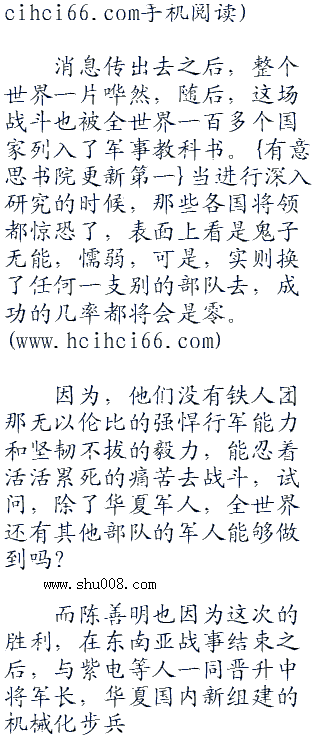 cihci66.com手机阅读)
消息传出去之后，整个
世界一片哗然，随后，这场
战斗也被全世界一百多个国
家列入了军事教科书。{有意
思书院更新第一}当进行深入
研究的时候，那些各国将领
都惊恐了，表面上看是鬼子
无能，懦弱，可是，实则换
了任何一支别的部队去，成
功的几率都将会是零。
(www.hcihci66.com)
因为，他们没有铁人团
那无以伦比的强悍行军能力
和坚韧不拔的毅力，能忍着
活活累死的痛苦去战斗，试
问，除了华夏军人，全世界
还有其他部队的军人能够做
到吗？
www.shu008.com
而陈善明也因为这次的
胜利，在东南亚战事结束之
后，与紫电等人一同晋升中
将军长，华夏国内新组建的
机械化步兵